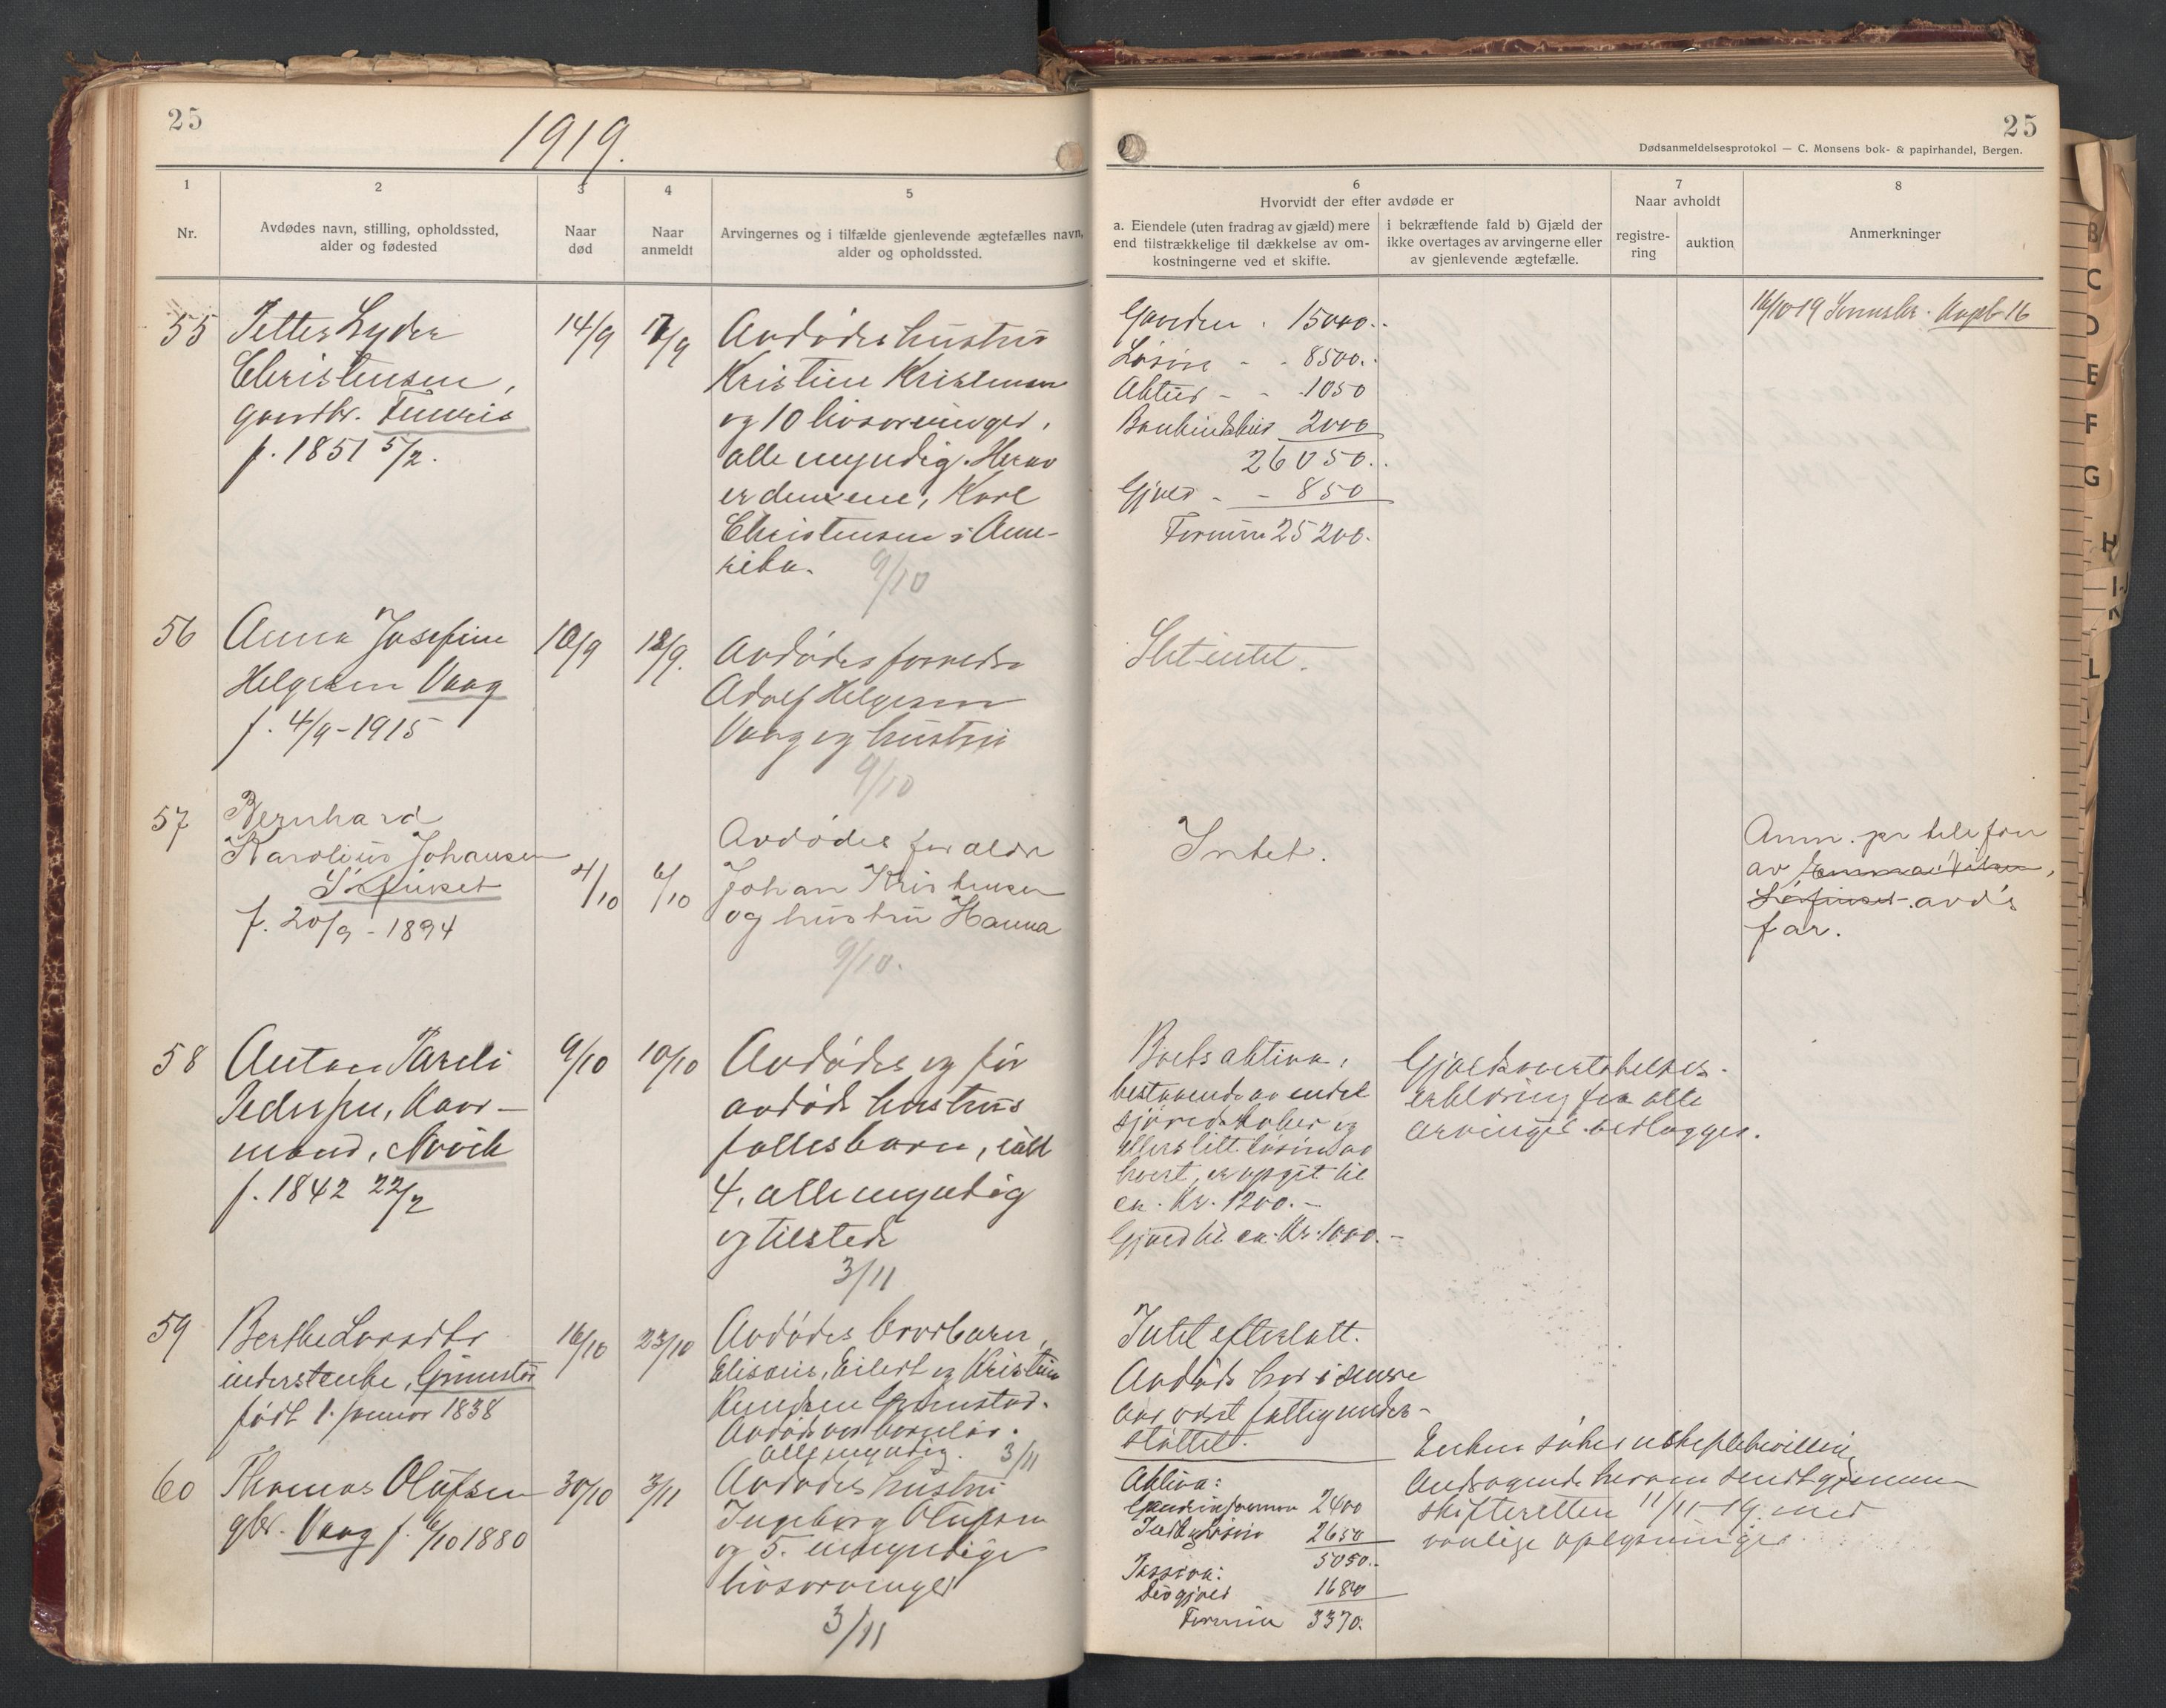 25
1919.
1
2
3
4
5
Nr.
Avdødes navn, stilling, opholdssted,
alder og fødested
Naar
død
Naar
anmeldt
Arvingernes og i tilfælde gjenlevende ægtefælles navn,
alder og opholdssted.
25
Dødsanmeldelsesprotokol — C. Monsens bok- & papirhandel, Bergen.
6
Hvorvidt der efter avdøde er
a. Eiendele (uten fradrag av gjæld) mere
end tilstrækkelige til dækkelse av om-
kostningerne ved et skifte.
i bekræftende fald b) Gjæld der
ikke overtages av arvingerne eller
av gjenlevende ægtefælle.
7
Naar avholdt
registre-
ring
auktion
8
Anmerkninger
55
Petter Lyder
Christensen,
gaardbr.
f. 1851 5/2.
14/9
17/9
Avdødes hustru
Kristine Kristensen
og 10 livsarvinger,
alle myndig. Herav
er den ene, Karl
Christensen i Ame-
rika.
9/10
Gaarden . 15000..
Løsøre - - 8500..
Aktier - - 1050
2000
26050..
Gjæld - - 850
Formue 25200.
16/10 19
56
Anna Josefine
Helgesen Vaag
f. 4/9-1915
10/9
18/9.
Avdødes forældre
Adolf Helgesen
Vaag og hustru
9/10
Slet intet.
57
Bernhard
Karolius Johansen
f. 20/9 - 1894
4/10
6/10
Avdødes forældre
Johan Kristensen
og hustru Hanna
9/10.
Intet.
Anm. pr telefon
av
avd's
far.
58
Anton Pareli
Pedersen, Kaar-
mand,
f. 1842 22/2
9/10
10/10
Avdødes og før
avdøde hustrus
fællesbarn, ialt
4, alle myndig
og tilstede
3/11
Boets aktiva,
bestaaende av endel
sjøredskaber og
ellers litt løsøre av
hvert, er opgit til
ca. Kr. 1200.-
Gjæld til ca. Kr. 1000.-
Gjældsovertakelses-
erklæring fra alle
arvinger vedlægges.
59
Berthe Larsdtr
inderstenke,
født 1. januar 1838
16/10
23/10
Avdødes brorbarn,
Elisæus, Eilert og Kristine
Knudsen
Avdøde var barnløs.
alle myndig. 3/11
Intet efterlatt.
Avdøde har i senere
aar været fattigunder-
støttet.
60
Thomas Olufsen
gbr. Vaag f. 6/10 1880
30/10
3/11
Avdødes hustru
Ingeborg Olufsen
og 5. umyndige
livsarvinger
3/11
Aktiva:
2400
2650
5050..
Passiva:
1680
Formue 3370.
Enken søker uskiftebevilling
Andragende herom sendt gjennem
skifteretten 11/11-19. med
vanlige oplysninger
B
C
D
E
F
G
H
I-J
K
L